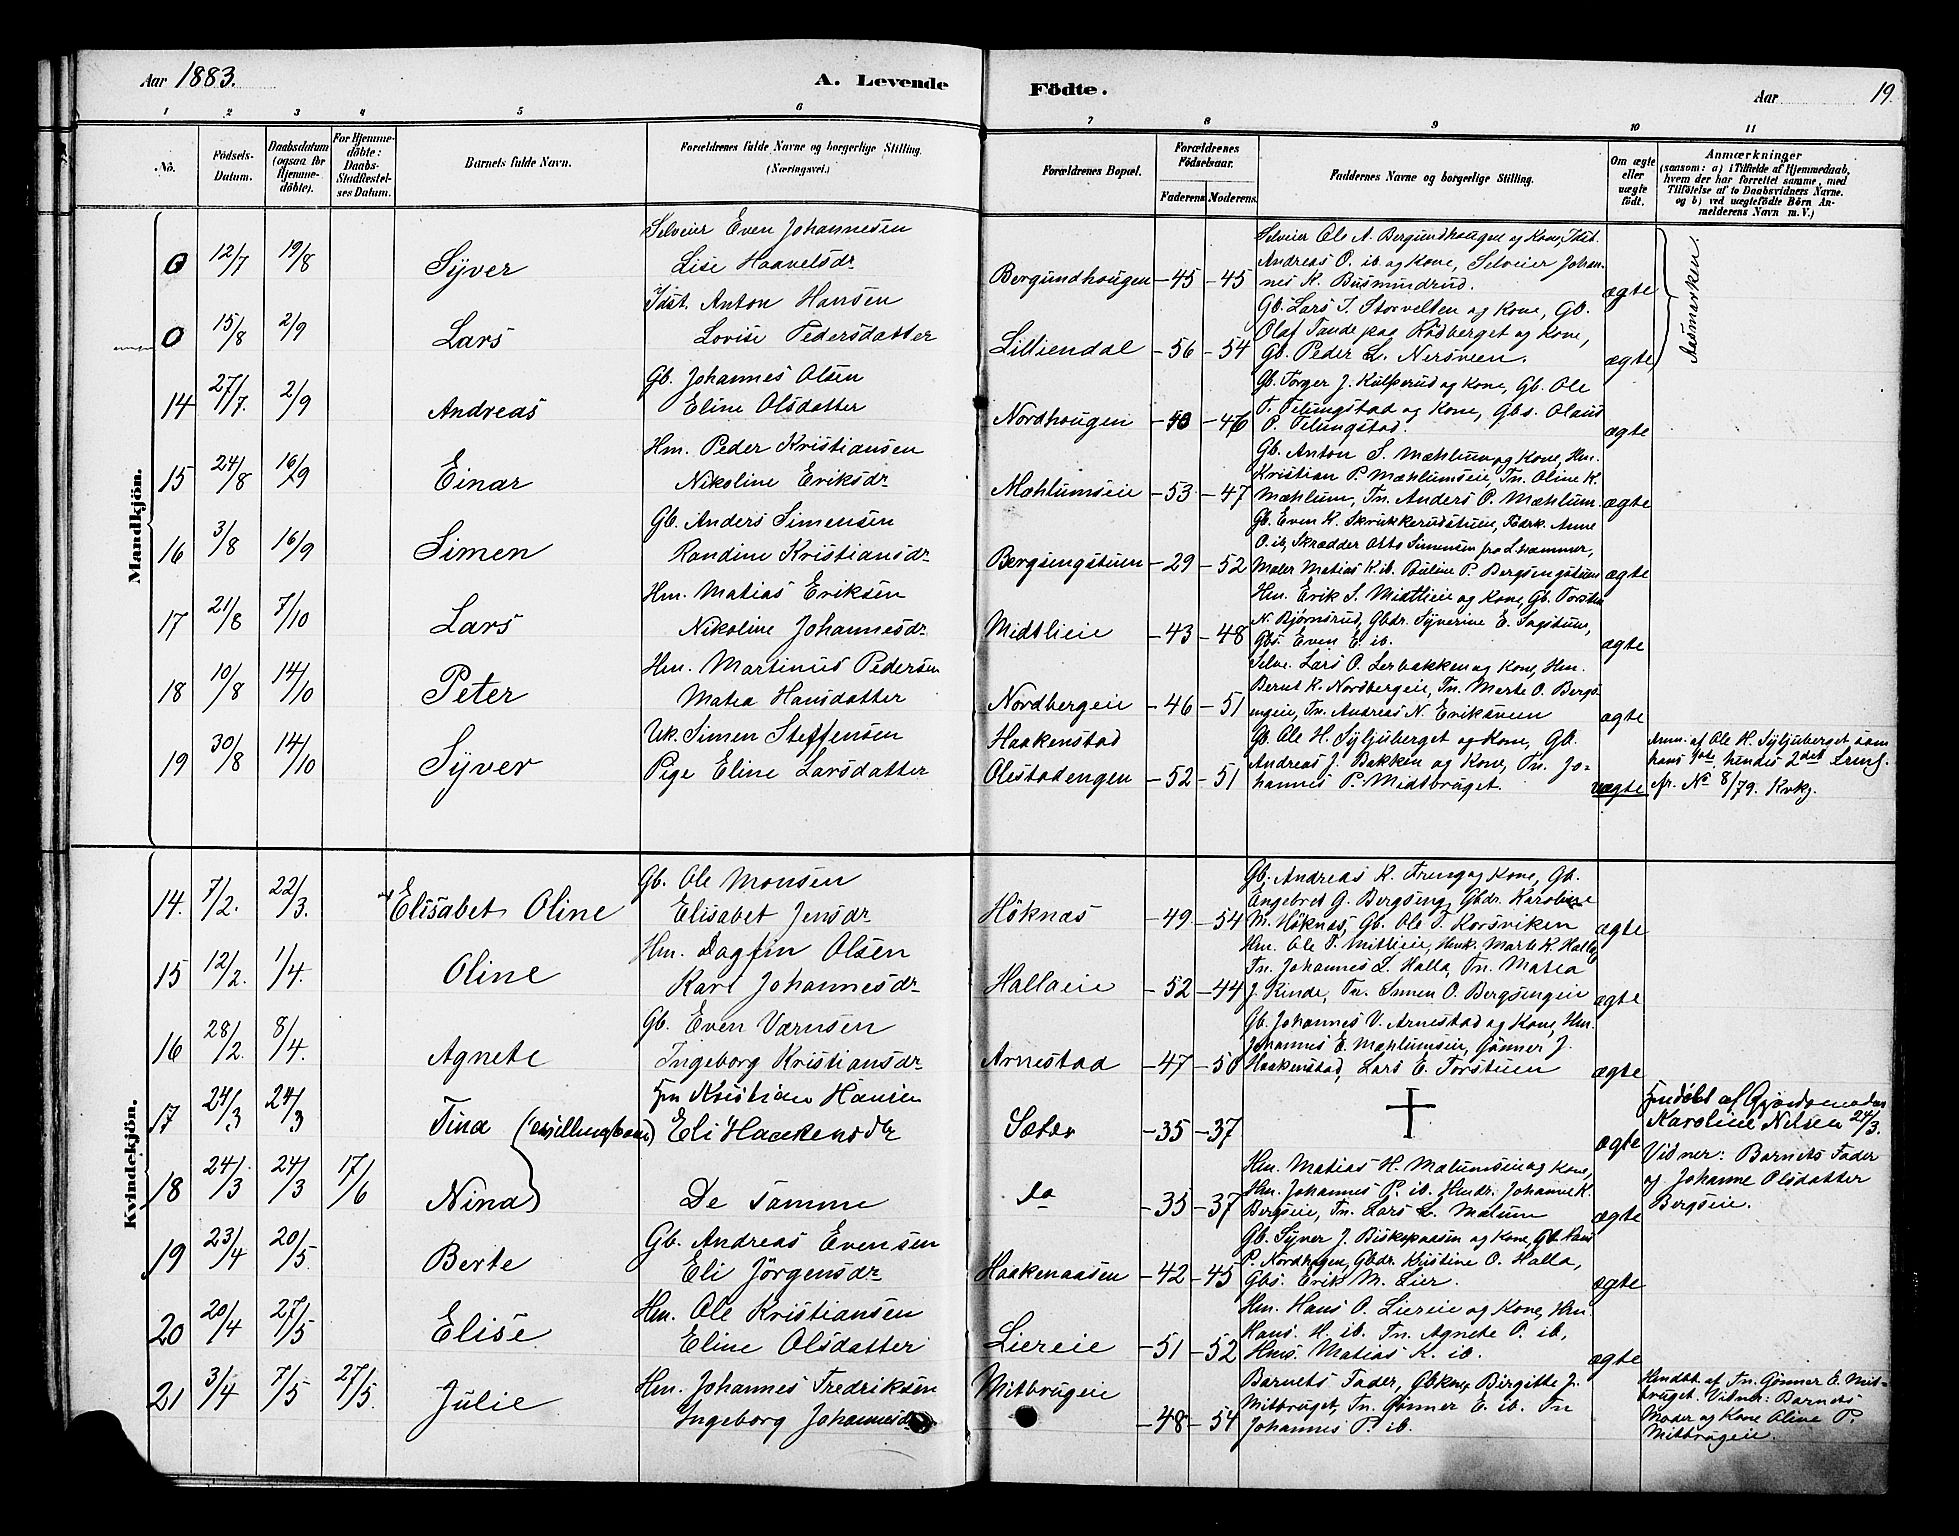 Aar 1883.
A. Levende
Födte.
Aar
19.
1 2 3 4 5 6 7 8 9 10 11
No.
Födsels-Datum.
Daabsdatum (ogsaa for Hjemme-döbte).
For Hjemme-döbte: Daabs-Stadfæstelses Datum.
Barnets fulde Navn.
Forældrenes fulde Navne og borgerlige Stilling. (Næringsvei.)
Forældrenes Bopæl.
Forældrenes Födselsaar.
Faderens. Moderens.
Faddernes Navne og borgerlige Stilling.
Om ægte eller uægte födt.
Anmærkninger
(saasom: a) i Tilfælde af Hjemmedaab, hvem der har forrettet samme, med Tilföielse af to Daabsvidners Navne, og b) ved uægtefödte Börn Anmelderens Navn m. V.)
Mandkjön.
0 12/7 19/8 Syver
Selveier Even Johannesen
Lise Haavelsdr
Bergundhougen -45 -45
Selveier Ole A. Bergundhougen og Kone, Idst.
Andreas O. ib. og Kone, Selveier Johan-
nes K. Busmundrud.
ægte
Aasmarken.
0 15/8 2/9 Lars
Idst. Anton Hansen
Lovise Pedersdatter
Lilliendal -56 -54
Gb. Lars I. Storvelten og Kone, Gb.
Olaf Tande paa Rødberget og Kone,
Gb. Peder L. Nersveen.
ægte
14 27/7. 2/9 Andreas
Gb. Johannes Olsen
Eline Olsdatter
Nordhougen -46
Gb. Torger J. Kulperud og Kone, Gb. Ole
T. Felungstad og Kone, Gbs. Olaus
P. Felungstad.
ægte
15 24/8 16/9 Einar
Hm. Peder Kristiansen
Nikoline Eriksdr
Mæhlumseie -53 -47
Gb. Anton S. Mæhlum og Kone, Hm.
Kristian P. Mæhlumseie, Tn. Oline K.
Mæhlum, Tn. Anders P. Mæhlum.
ægte
16 3/8 16/9 Simen
Gb. Anders Simensen
Randine Kristiansdr
Bergsengstuen -29 -52
Gb. Even K. Skrukkerudstuen, Anne
O. ib, Skrædder Otto Simensen fra L.hammer,
Maler Matias K. ib. Buline P. Bergsengstuen
ægte
17 21/8 7/10 Lars
Hm. Matias Eriksen
Nikoline Johannesdr
Midtlieie -43 -48
Hm. Erik S. Midtlieie og Kone, Gb. Torsten
N. Bjørnsrud, Gbdr. Syverine E. Sagstuen,
Gbs. Even E. ib.
ægte
18 10/8 14/10 Peter
Hm. Martinus Pedersen
Matea Hansdatter
Nordbergeie -46 -51
Selve. Lars O. Lerbakken og Kone, Hm.
Bernt K. Nordbergeie, Tn. Merte O. Bergs-
engeie, Tn. Andreas N. Eriksveen
ægte
19 30/8 14/10 Syver
Uk. Simen Steffensen
Pige Eline Larsdatter
Haakenstad
Olestadengen -52 -51
Gb. Ole H. Syljuberget og Kone, Gb.
Andreas J. Bakken og Kone, Tn. Jo-
hannes P. Midtbruget.
uægte
Anm. af Ole H. Syljuberget, som
hans 1ste, hendes 2det
fr. No 8/79. Kvkj.
Kvindekjön.
14. 7/2. 22/3. Elisabet Oline
Gb. Ole Monsen
Elisabet Jensdr
Höknæs -49 -54
Gb. Andreas K. Freng og Kone, Gb.
Engebret G. Bergseng, Gbdr. Karoline
M. Höknæs, Gb. Ole T. Korsviken
ægte
15 12/2. 1/4. Oline
Hm. Dagfin Olsen
Kari Johannesdr
Hallaeie -52 -44
Hm. Ole P. Mitlieie, Hmk. Marte K. Halla,
Tn. Johannes L. Halla, Tn. Matea
J. Kinde, Tn. Simen O. Bergsengeie
ægte
16 28/2. 8/4. Agnete
Gb. Even Værnsen
Ingeborg Kristiansdr
Arnestad -47 -50
Gb. Johannes V. Arnestad og Kone, Hm.
Johannes E. Mæhlumseie, Gønner J.
Haakenstad, Lars E. Torstuen
ægte
17 24/3 24/3 Tina (tvillingbarn)
Kristian Hansen
Eli Haakensdtr
Sæter -35 -37
ægte
Hmdöbt af Gjordemoder
Karoline Nilsen 24/3.
18 24/3 24/3 17/6 Nina
De samme
do -35 -37
Hm. Matias H. Mælumseie og Kone,
Hm. Johannes P. ib. Hmdr. Johanne K.
Bergseie, Tn. Lars L. Mælum
ægte
Vidner: Barnets Fader
og Johanne Olsdatter
Bergseie.
19 23/4 20/5. Berte
Gb. Andreas Evensen
Eli Jörgensdr
Haakenaasen -42 -45
Gb. Syver J. Biskopaasen og Kone, Gb. Hans
P. Nordhagen, Gbdr. Kristine O. Halla,
Gbs. Erik M. Lier.
ægte
20 20/4 27/5 Elise
Hm. Ole Kristiansen
Eline Olsdatter
Liereie -51 -52
Hm. Hans O. Liereie og Kone, Hm
Hans. H. ib. Tn. Agnete O. ib,
Hms. Matias K. ib.
ægte
21 3/4 7/5 27/5. Julie
Hm. Johannes Fredriksen
Ingeborg Johannesdr
Mitbrugeie -48 -54
Barnets Fader, Gbkone Birgitte J.
Mitbruget, Tn. Gønner E. ib. Tn
Johannes P. ib.
Hmdbt. af Tn. Gønner E. Mit-
bruget. Vidner: Barnets
Moder og Kone Oline P.
Mitbrugeie.